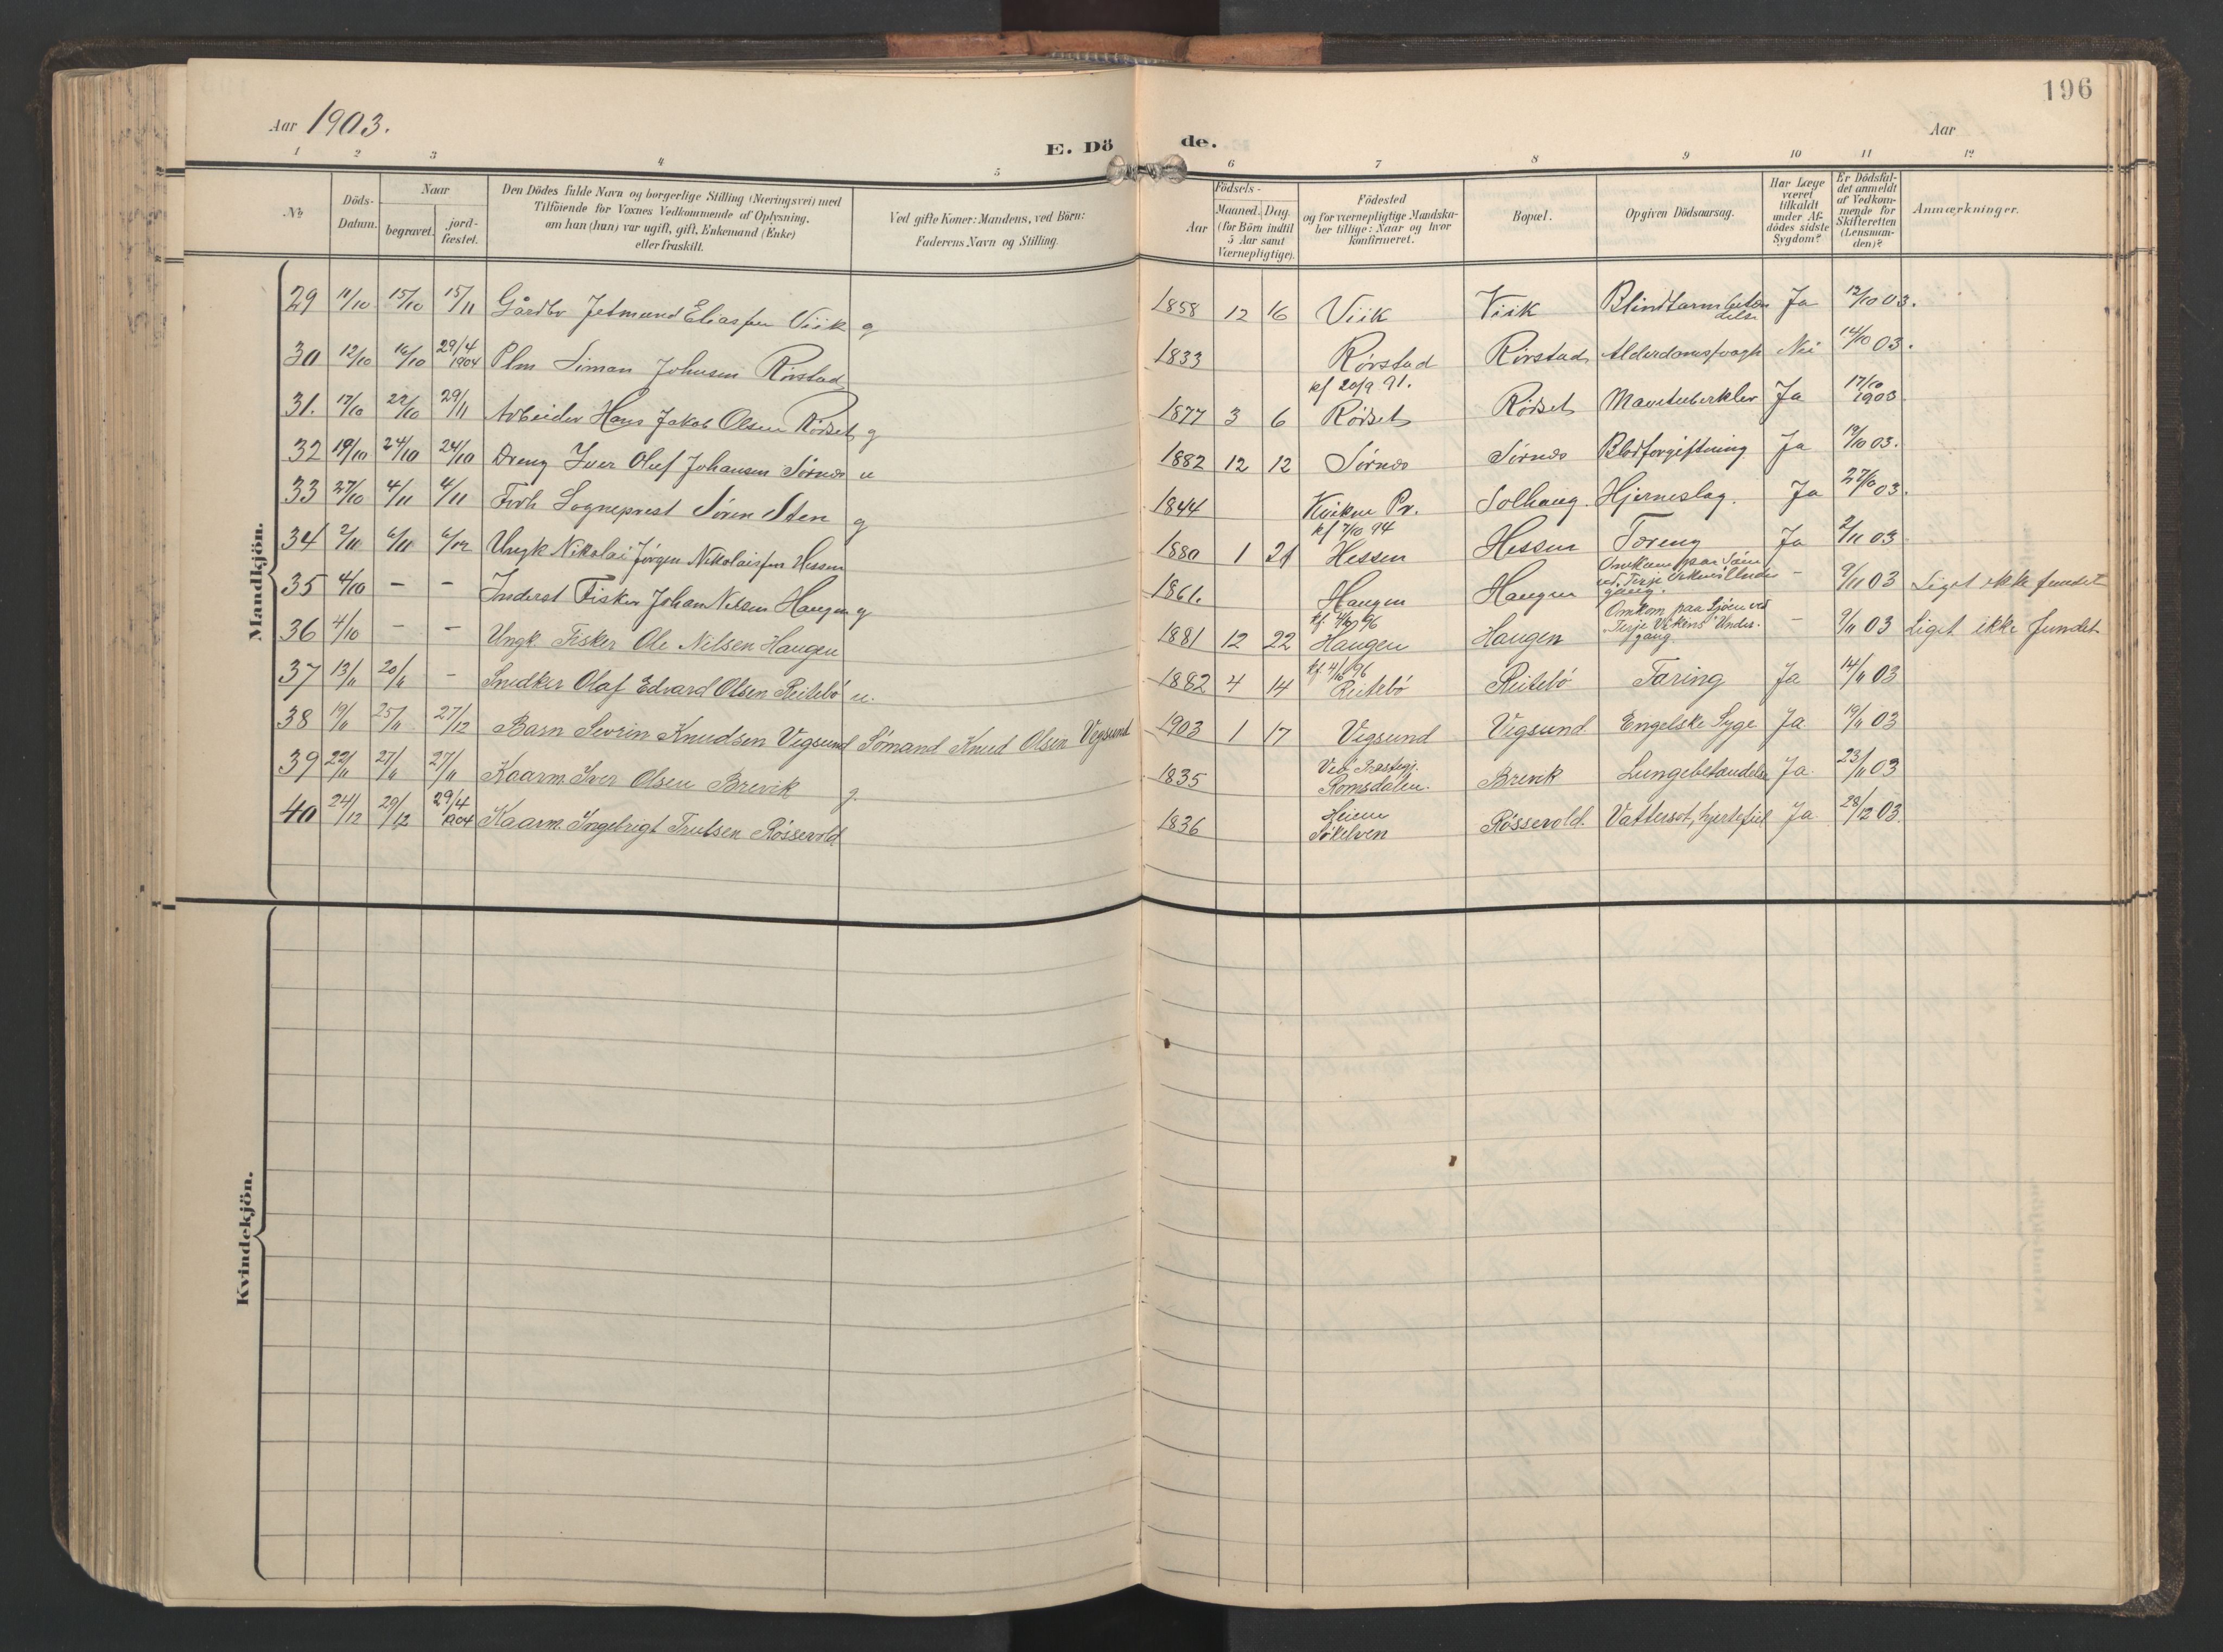 196
Aar 1903.
Aar
E. Dö de.
1 2 3 4 5 6 7 8 9 10 11 12
No
Döds-Datum.
Naar
begravet.
jord-fæstet.
Den Dödes fulde Navn og borgerlige Stilling (Næringsvei) med
Tilföiende for Voxnes Vedkommende af Oplysning,
om han (hun) var ugift, gift, Enkemand (Enke)
eller fraskilt.
Ved gifte Koner: Mandens, ved Börn:
Faderens Navn og Stilling.
Födsels-
Aar
Maaned. Dag.
(for Börn indtil
5 Aar samt
Værnepligtige).
Födested
og for værnepligtige Mandska-
ber tillige: Naar og hvor
konfirmeret.
Bopæl.
Opgiven Dödsaarsag.
Har Læge
været
tilkaldt
under Af-
dödes sidste
Sygdom?
Er Dödsfal-
det anmeldt
af Vedkom-
mende for
Skifteretten
(Lensman-
den)?
Anmærkninger.
Mandkjön.
29 11/10 15/10 15/11 Gårdbr Jetmund Eliassen Viik g 1858 12 16 Viik Viik Blindtarmbetændelse Ja 12/10 03.
30 12/10 16/10 29/4 1904 Plm Simon Johnsen Rörstad 1833 Rörstad Rörstad Alderdomssvagh Nei 14/10 03.
31. 17/10 22/10 29/11 Arbeider Hans Jakob Olsen Rödset g 1877 3 6 kf 20/9 91. Rödset Rödset Mavetuberkler Ja 17/10 1903
32 19/10 24/10 24/10 Dreng Iver Oluf Johansen Sörnes u 1882 12 12 Sörnes Sörnes Blodforgiftning Ja 19/10 03.
33 27/10 4/11 4/11 Forh Sogneprest Sören Sten g 1844 Kviken Pr. Solhaug. Hjerneslag. Ja 27/10 03.
34 2/11 6/11 6/12 Ungk Nikolai Jörgen Nikolaissen Hessen 1880 1 21 kf 7/10 94 Hessen Hessen Toreng Ja 2/11 03
35 4/10 – – Inderst Fisker Johan Nilsen Haugen g 1861. Haugen Haugen Omkom paa Sjöen ved Terje Vikens Undergang. – 9/11 03 Liget ikke fundet
36 4/10 – – Ungk. Fisker Ole Nilsen Haugen 1881 12 22 kf. 4/10 96 Haugen Haugen Omkom paa Sjöen ved Terje Vikens Undergang – 9/11 03 Liget ikke fundet
37 13/11 20/11 – Snedker Olaf Edvard Olsen Reitebö u. 1882 4 14 kf 4/10 96 Reitebö Reitebö Tæring Ja 14/11 03
38 19/11 25/11 27/12 Barn Sevrin Knudsen Vegsund Sömand Knud Olsen Vegsund 1903 1 17 Vegsund Vegsund Engelske Syge Ja 19/11 03
39 22/11 27/11 27/11 Kaarm. Iver Olsen Brevik g. 1835 Romsdalen. Brevik Lungebetændelse Ja 23/11 03
40 24/12 29/12 29/4 1904 Kaarm. Ingebrigt Trulsen Rössevold 1836 Sökelven Rössevold. Vattersot, hjertefeil Ja 28/12 03
Kvindekjön.